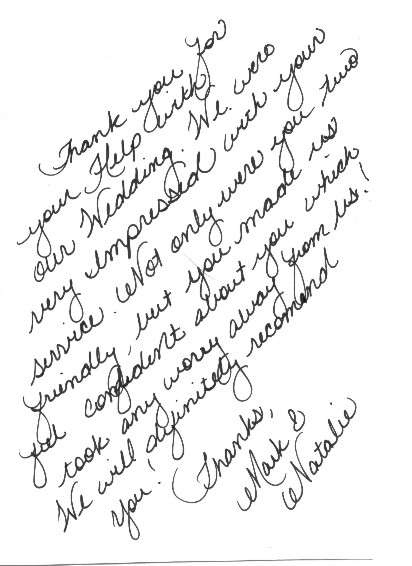 Thank you for
your Help with
our Wedding. We were
very impressed with your
service. Not only were you two
friendly, but you made us
feel confident about you which
took any worry away from us!
We will definitely recomend
you! Thanks,
Mark &
Natalie